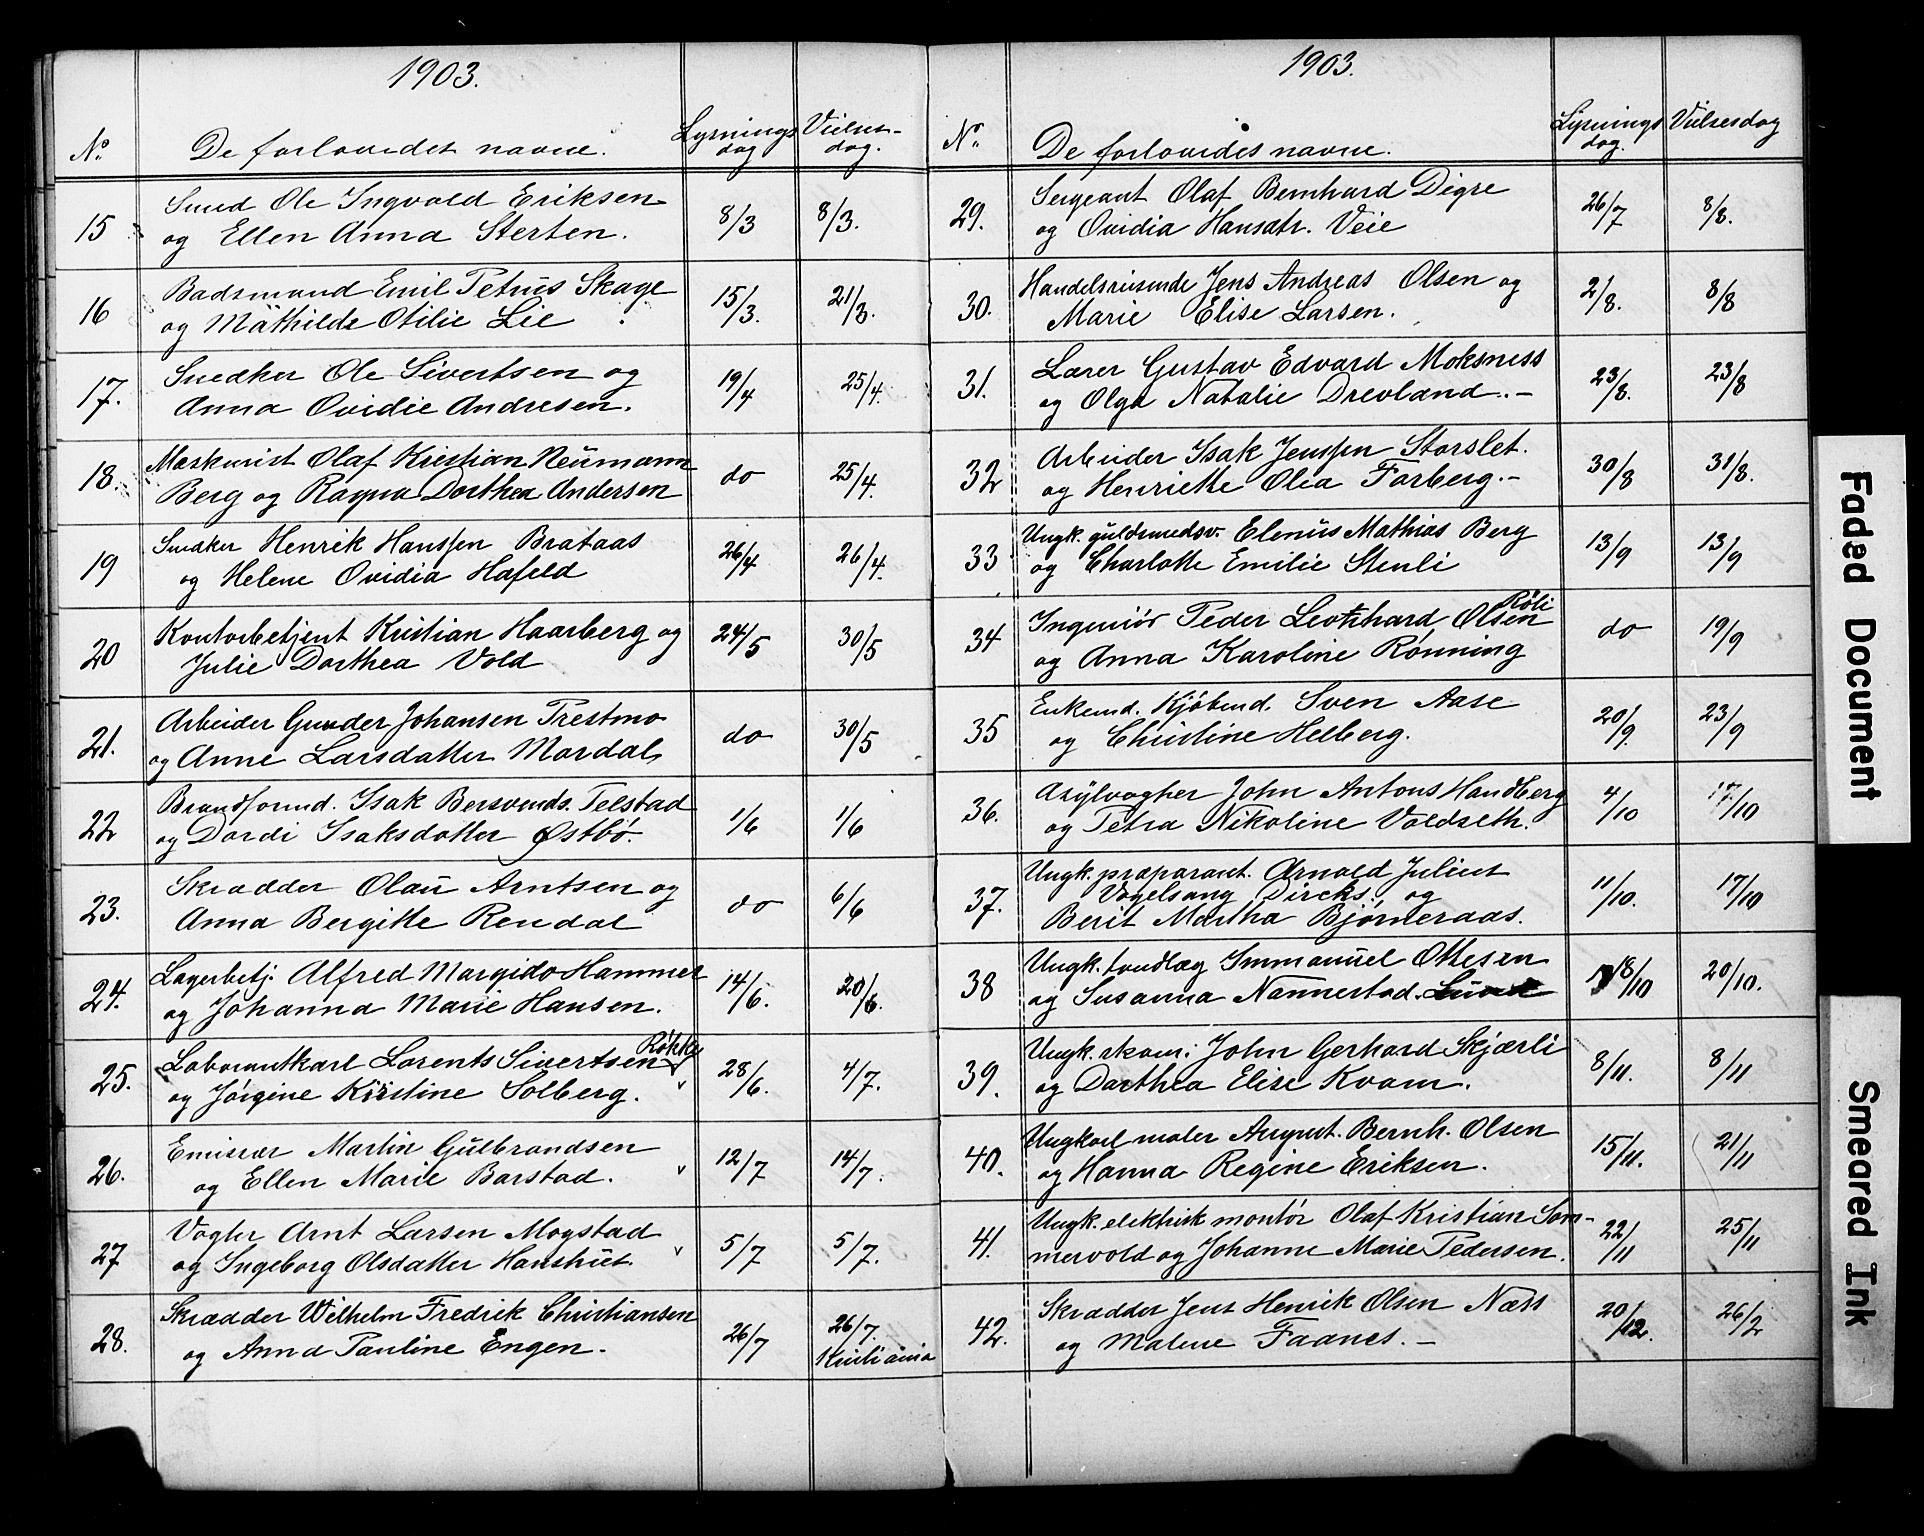 1903.
No. De forlovedes navne. Lysnings dag Vielses-dag.
15 Smed Ole Ingvald Eriksen
og Ellen Anna Sterten. 8/3 8/3.
16 Badsmand Emil Petrus Skage
og Mathilde Otilie Lie 15/3. 21/3.
17. Snedker Ole Sivertsen og
Anna Ovidie Andresen. 19/4 25/4.
18. Maskinist Olaf Kristian Neumann
Berg og Ragna Dorthea Andersen do 25/4.
19 Snedker Henrik Hanssen Brataas
og Helene Ovidia Hafeld 26/4 26/4.
20 Kontorbetjent Kristian Haarberg og
Julie Dorthea Vold 24/5 30/5
21. Arbeider Gunder Johansen Trestmo
og Anne Larsdatter Mordal do 30/5
22 Brandformd. Isak Bersvends. Telstad
og Dordi Isaksdatter Østbö. 1/6 1/6
23. Skrædder Olaü Arntsen og
Anna Bergitte Rendal do 6/6
24. Lagerbetj. Alfred Margido Hammer
og Johanna Marie Hansen. 14/6. 20/6.
Rökke
25. Laborantkarl Lorents Sivertsen
og Jörgine Kirstine Solberg. 28/6. 4/7.
26. Emissær Martin Gulbrandsen
og Ellen Marie Barstad. 12/7 14/7.
27 Vogter Arnt Larsen Mogstad
og Ingeborg Olsdatter Hanshüt. 5/7 5/7.
28. Skrædder Wilhelm Fredrik Christiansen
og Anna Pauline Engen. 26/7 26/7.
Kristiania
1903.
No. De forlovedes navne. Lysnings dag. Vielsesdag
29. Sergeant Olaf Bernhard Digre
og Ovidia Hansdtr. Veie 26/7 8/8.
30. Handelsreisende Jens Andreas Olsen og
Marie Elise Larsen. 2/8. 8/8
31. Lærer Gustav Edvard Moksness
og Olga Natalie Drevland.- 23/8. 23/8
32 Arbeider Isak Jenssen Storslet.
og Henriette Olea Forberg.- 30/8 31/8.
33 Ungk. guldsmedsv. Elenüs Mathias Berg
og Charlotte Emilie Stenli 13/9 13/9
Röli
34 Ingeniör Peder Leonhard Olsen
og Anna Karoline Rönning do 19/9
35 Enkemd. Kjöbmd. Sven Aase
og Christine Helberg. 20/9. 23/9
36. Asylvogter John Antons Handberg
og Petra Nikoline Voldseth. 4/10 17/10
37. Ungk. præparant. Arnold Julius
Vogelsang Dircks. og
Berit Martha Bjørneraas. 11/10. 17/10
38 Ungk. tandlæg Immanuel Ottesen
og Susanna Nannestad. 18/10 20/10.
39. Ungk. skom. John Gerhard Skjærli
og Dorthea Elise Kvam. 8/11. 8/11
40. Ungkarl maler August. Bernh. Olsen
og Hanna Regine Eriksen. 15/11. 21/11
41. Ungk. elektrisk montör Olaf Kristian Som-
mervold og Johanne Marie Pedersen. 22/11 25/11
42. Skrædder Jens Henrik Olsen Næss
og Malene Faanes.- 20/12. 26/2
Faded Document
Smeared Ink